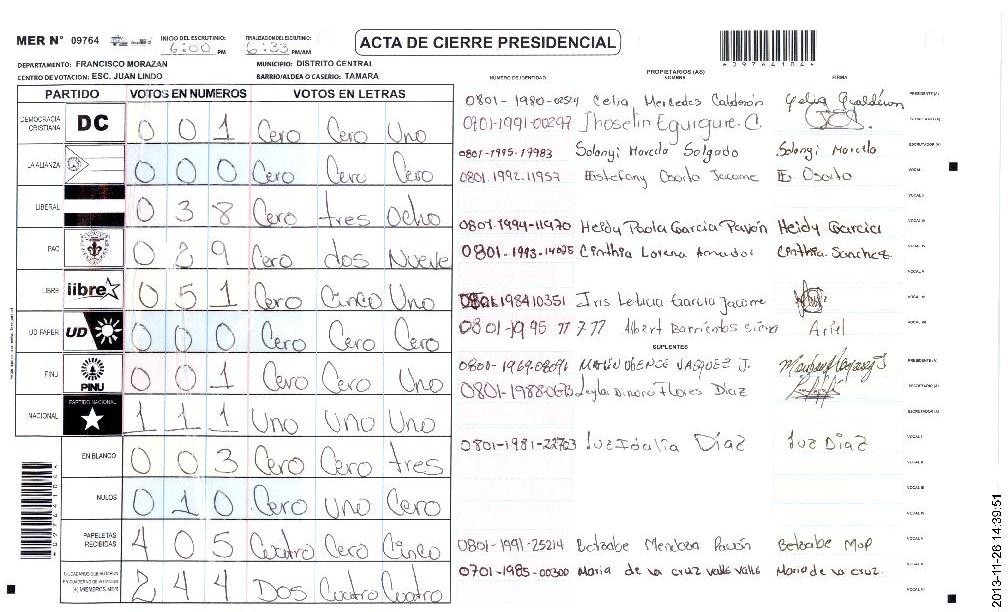 MER N° 09764 INICIO DEL ESCRUTINIO: 6:00 PM FINALIZACION DEL ESCRUTINIO: 6:33 PM/AM
ACTA DE CIERRE PRESIDENCIAL
DEPARTAMENTO: FRANCISCO MORAZAN MUNICIPIO: DISTRITO CENTRAL
CENTRO DE VOTACION: ESC. JUAN LINDO BARRIO/ALDEA O CASERIO: TAMARA
NUMERO DE IDENTIDAD PROPIETARIOS (AS) NOMBRE FIRMA
PARTIDO VOTOS EN NUMEROS VOTOS EN LETRAS
DEMOCRACIA CRISTIANA DC 0 0 1 Cero Cero Uno
LA ALIANZA 0 0 0 Cero Cero Cero
LIBERAL 0 3 8 Cero tres Ocho
PAC 0 2 9 Cero dos Nueve
LIBRE libre 0 5 1 Cero Cinco Uno
UD FAPER UD 0 0 0 Cero Cero Cero
PINU PINU 0 0 1 Cero Cero Uno
NACIONAL PARTIDO NACIONAL 1 1 1 Uno Uno Uno
EN BLANCO 0 0 3 Cero Cero tres
NULOS 0 1 0 Cero Uno Cero
PAPELETAS RECIBIDAS 4 0 5 Cuatro Cero Cinco
CIUDADANOS QUE VOTARON EN CUADERNO DE VOTACION (+) MIEMBROS MER 2 4 4 Dos Cuatro Cuatro
Celia Mercedes Calderón PRESIDENTE (A)
0801-1991-00299 Jhoselin Eguigure. C. SECRETARIO (A)
0801-1995-19983 Solanyi Marcela Salgado Solanyi Marcela ESCRUTADOR (A)
0801-1992-11957 Estefany Osorto Jacome E. Osorto VOCAL I
VOCAL II
0801-1994-11970 Heidy Paola Garcia Pavón Heidy Garcia VOCAL III
0801-1993-14095 Cinthia Lorena Amador Cinthia Sanchez VOCAL IV
VOCAL V
198410351 Iris Leticia Garcia Jacome VOCAL VI
0801-1995 Albert Barrientos Ariel VOCAL VII
SUPLENTES
VASQUEZ J. PRESIDENTE (A)
Flores Diaz SECRETARIO (A)
ESCRUTADOR (A)
0801-1981-22763 Luz Idalia Díaz Luz Diaz VOCAL I
VOCAL II
VOCAL III
VOCAL IV
0801-1991-25214 Betzabe Mendoza Pavón Betzabe VOCAL V
0701-1985-00300 Maria de la cruz valle valle Maria de la cruz. VOCAL VI
2013-11-26 14:39:51